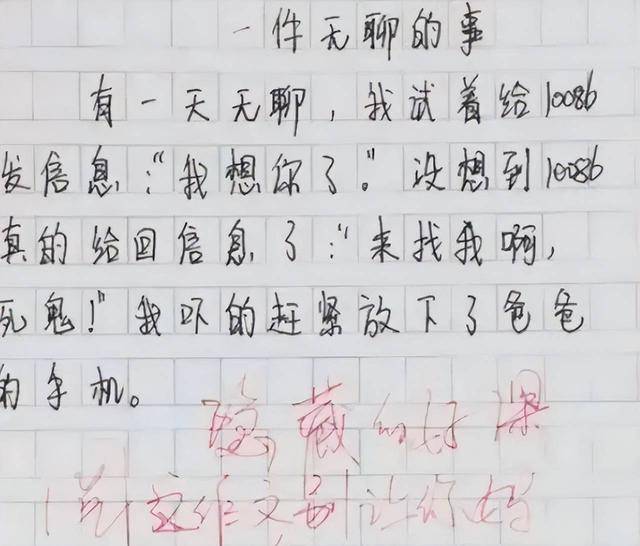 一件无聊的事
有一天无聊，我试着给10086
发信息："我想你了。"没想到10086
真的给回信息了："来找我啊，
死鬼！"我吓的赶紧放下了爸爸
的手机。
隐藏的好深
这篇作文别让你妈